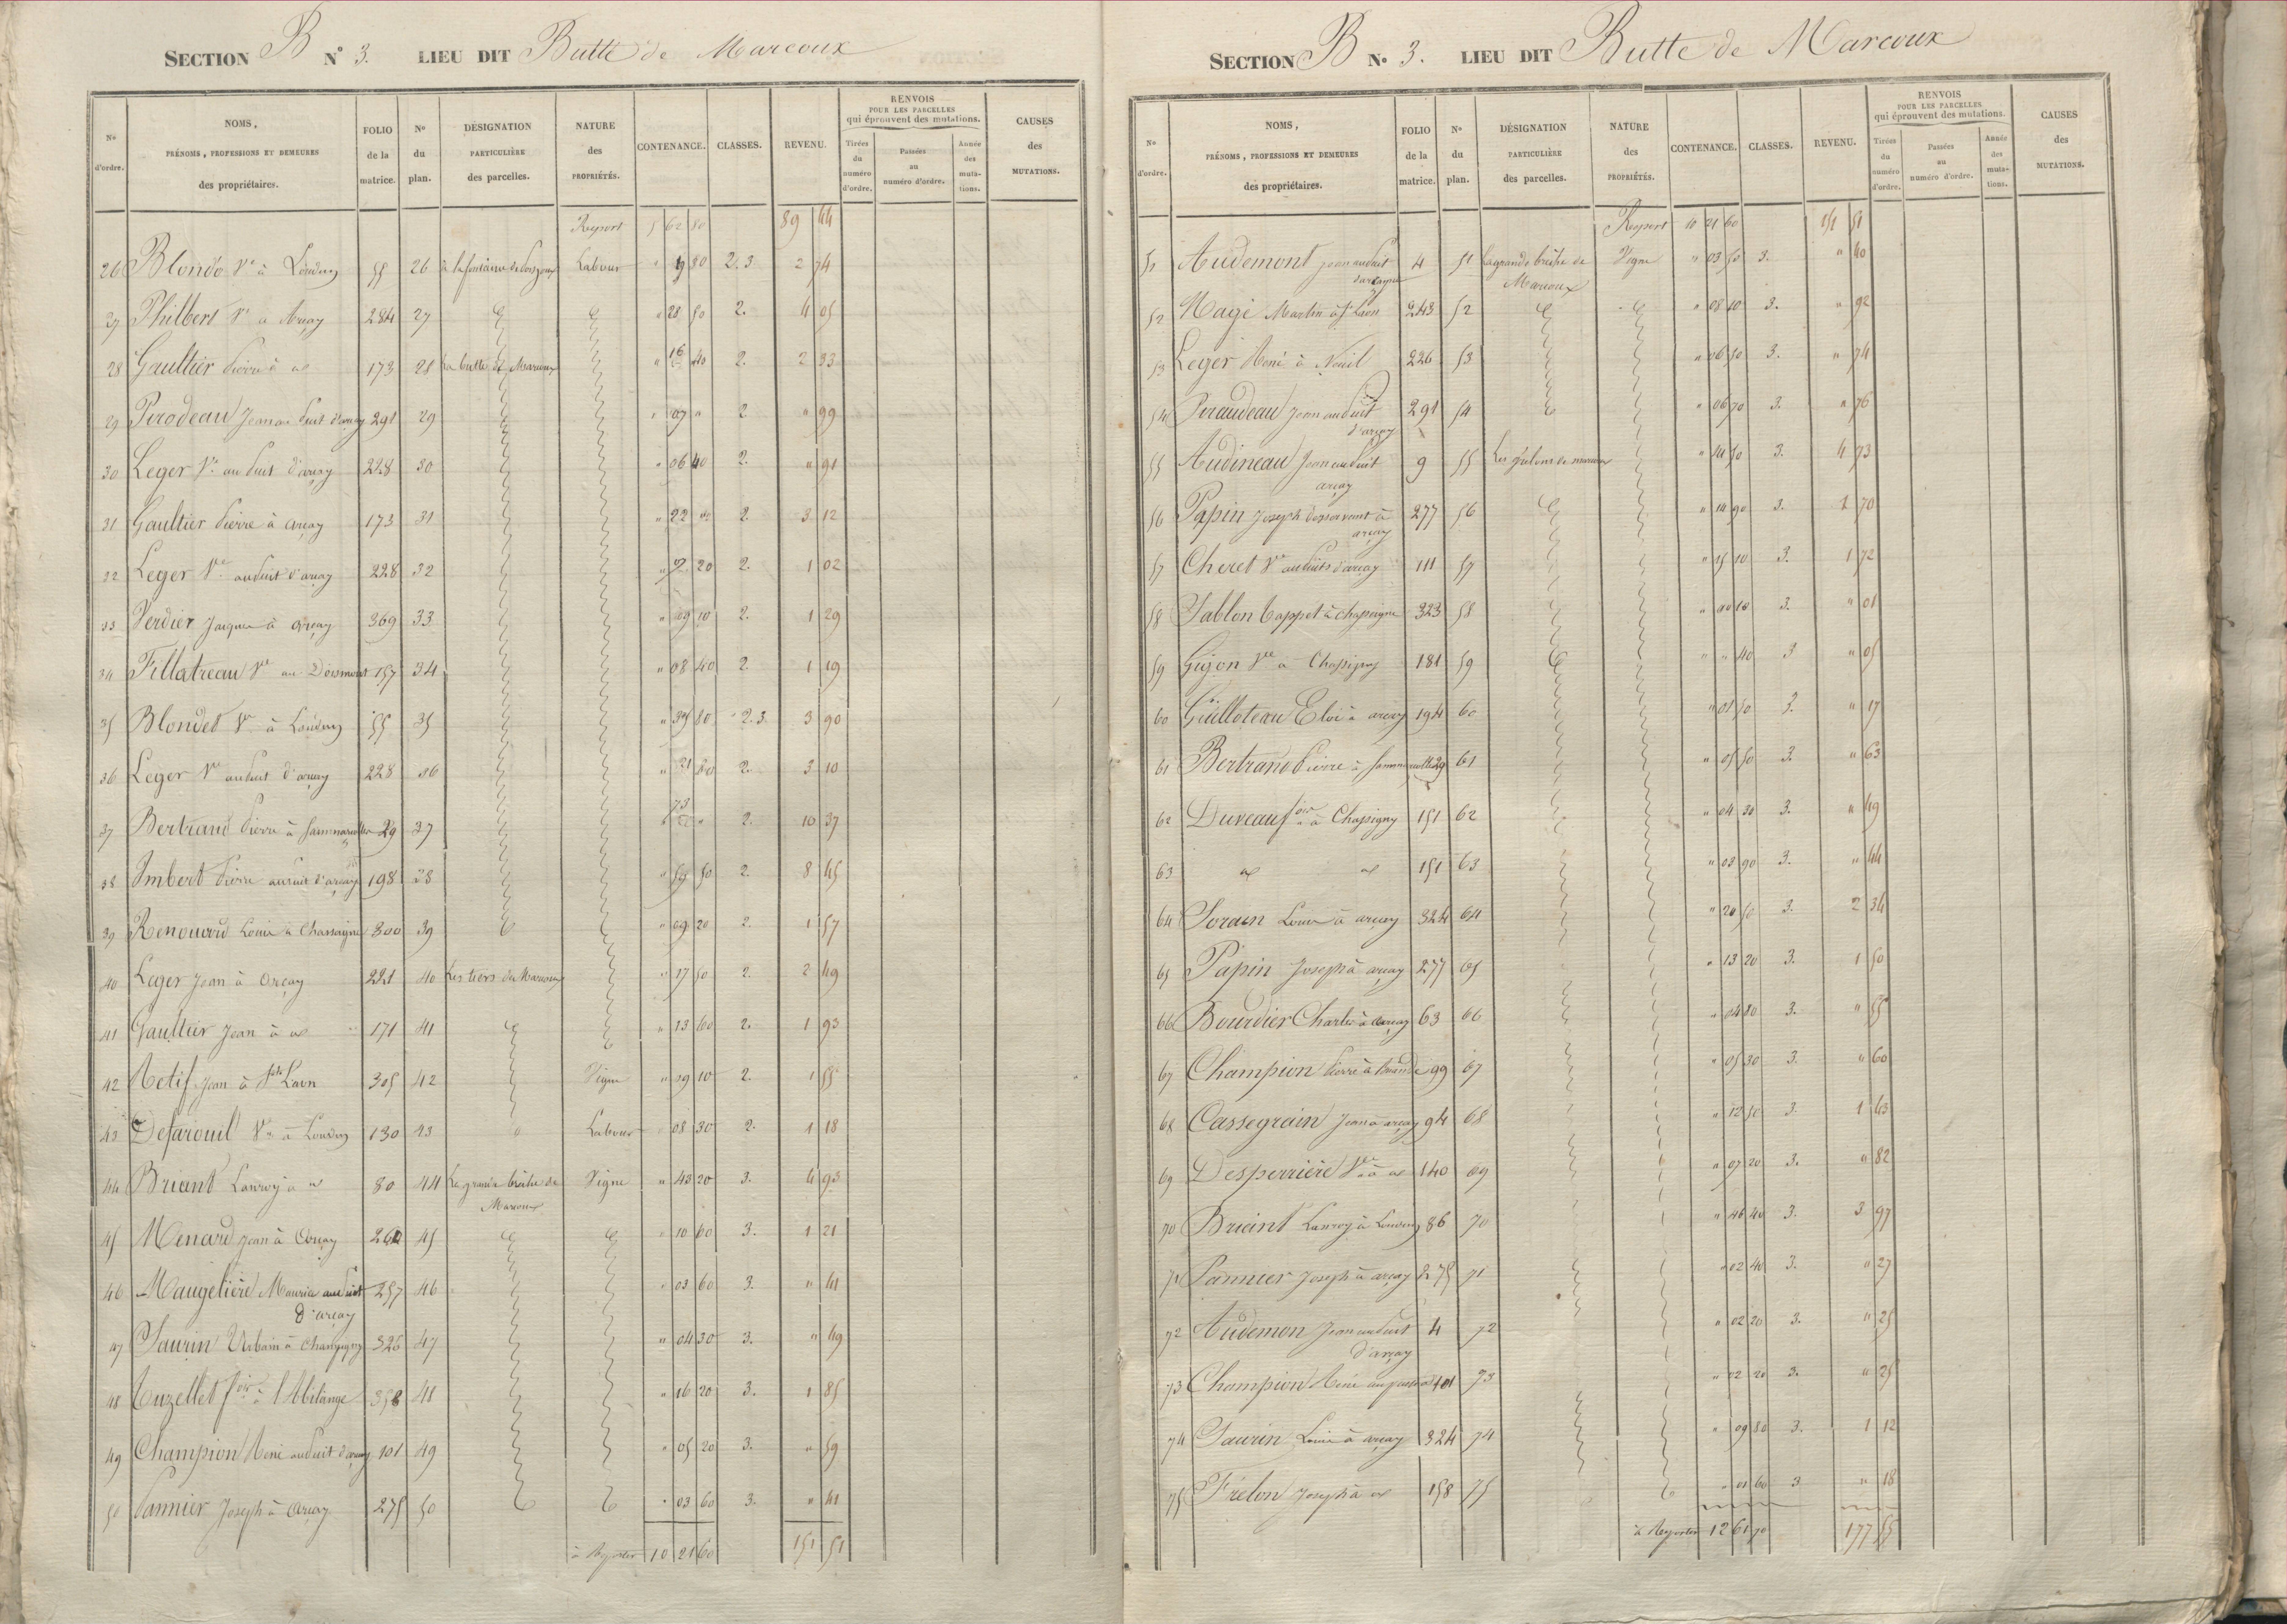 SECTION B N° 3. LIEU DIT Butte de Marcoux
N° d'ordre. NOMS, PRÉNOMS, PROFESSIONS ET DEMEURES des propriétaires. FOLIO de la matrice. N° du plan. DÉSIGNATION PARTICULIÈRE des parcelles. NATURE des PROPRIÉTÉS. CONTENANCE. CLASSES. REVENU. RENVOIS POUR LES PARCELLES qui éprouvent des mutations. Tirées du numéro d'ordre. Passées au numéro d'ordre. Année des mutations. CAUSES des MUTATIONS.
Report 5 62 80 89 44
26 Blondo Ve à Loudun 55 26 à la fontaine de Labour " 19 80 2.3 2 74
27 Philbert Ve à Arçay 284 27 " 28 50 2. 4 05
28 Gaultier Pierre à 173 28 La butte de Marcoux " 16 40 2. 2 33
29 Pirodeau Jean au Puit d'arçay 291 29 " 07 " 2 " 99
30 Leger Ve au Puit d'arçay 228 30 " 06 40 2. " 91
31 Gaultier Pierre à arçay 173 31 " 22 2. 3 12
32 Leger Ve au Puit d'arçay 228 32 " 7 20 2. 1 02
33 Verdier Jacques à arçay 369 33 " 09 10 2. 1 29
34 Fillatreau Ve 157 34 " 08 40 2. 1 19
35 Blondet Ve à Loudun 55 35 " 80 2.3. 3 90
36 Leger Ve au Puit d'arçay 228 36 " 21 80 2. 3 10
37 Bertrand Pierre à Sammarolles 29 37 " 73 " 2. 10 37
38 Imbert Pierre au Puit d'arçay 198 38 " 59 50 2 8 45
39 Renouard Louis à Chassaigne 300 39 " 09 20 2. 1 57
40 Leger Jean à Arçay 221 40 Les tiers de Marcoux " 17 50 2. 2 49
41 Gaultier Jean à 171 41 " 13 60 2. 1 93
42 Retif Jean à St Laon 305 42 Vigne " 09 10 2. 1 55
43 Defarouil Ve à Loudun 130 43 Labour " 08 30 2. 1 18
44 Briant Lanroy à 80 44 La grande brèche de Marcoux Vigne " 43 20 3. 4 93
45 Menard Jean à Arçay 260 45 " 10 60 3. 1 21
46 Maugeliere Maurice au Puit d'arçay 257 46 " 03 60 3. " 41
47 Saurin Urbain à Champigny 326 47 " 04 30 3. " 49
48 Tuzellet 358 48 " 16 20 3. 1 85
49 Champion René au Puit d'arçay 101 49 " 05 20 3. " 59
50 Pannier Joseph à Arçay 275 50 " 03 60 3. " 41
à Reporter 10 21 60 151 51
SECTION B N° 3. LIEU DIT Butte de Marcoux
N° d'ordre. NOMS, PRÉNOMS, PROFESSIONS ET DEMEURES des propriétaires. FOLIO de la matrice. N° du plan. DÉSIGNATION PARTICULIÈRE des parcelles. NATURE des PROPRIÉTÉS. CONTENANCE. CLASSES. REVENU. RENVOIS POUR LES PARCELLES qui éprouvent des mutations. Tirées du numéro d'ordre. Passées au numéro d'ordre. Année des mutations. CAUSES des MUTATIONS.
Report 10 21 60 151 51
51 Audemont Jean au Puit d'arçay 4 51 La grande brèche de Marcoux Vigne " 03 50 3. " 40
52 Nagé Martin à St Laon 243 52 " 08 10 3. " 92
53 Leger René à Neuil 226 53 " 06 50 3. " 74
54 Piraudeau Jean au Puit d'arçay 291 54 " 06 70 3. " 76
55 Audineau Jean au Puit arçay 9 55 " 41 50 3. 4 73
56 Papin Joseph desservant à arçay 277 56 " 14 90 3. 1 70
57 Cheret Ve au Puits d'arçay 111 57 " 15 10 3. 1 72
58 Sablon 323 58 " 00 10 3. " 01
59 Gujon Ve à Chapigny 181 59 " " 40 3 " 05
60 Guilloteau Eloi à arçay 194 60 " 01 50 3. " 17
61 Bertrand Pierre à Sammarolles 29 61 " 05 50 3. " 63
62 Duveau à Chapigny 151 62 " 04 30 3. " 49
63 151 63 " 03 90 3. " 44
64 Sorain Louis à arçay 324 64 " 20 50 3. 2 34
65 Papin Joseph à arçay 277 65 " 13 20 3. 1 50
66 Bourdier Charles à arçay 63 66 " 04 80 3. " 55
67 Champion Pierre à 99 67 " 05 30 3. " 60
68 Cassegrain Jean à arçay 94 68 " 12 50 3. 1 43
69 Desperriere Ve à 140 69 " 07 20 3. " 82
70 Brient Lanroy à Loudun 86 70 " 46 40 3. 3 97
71 Pannier Joseph à arçay 275 71 " 02 40 3. " 27
72 Audemon Jean au Puit d'arçay 4 72 " 02 20 3. " 25
73 Champion René 101 73 " 02 20 3. " 25
74 Saurin Louis à arçay 324 74 " 09 80 3. 1 12
75 Frelon Joseph à 158 75 " 01 60 3 " 18
à Reporter 12 61 70 177 55